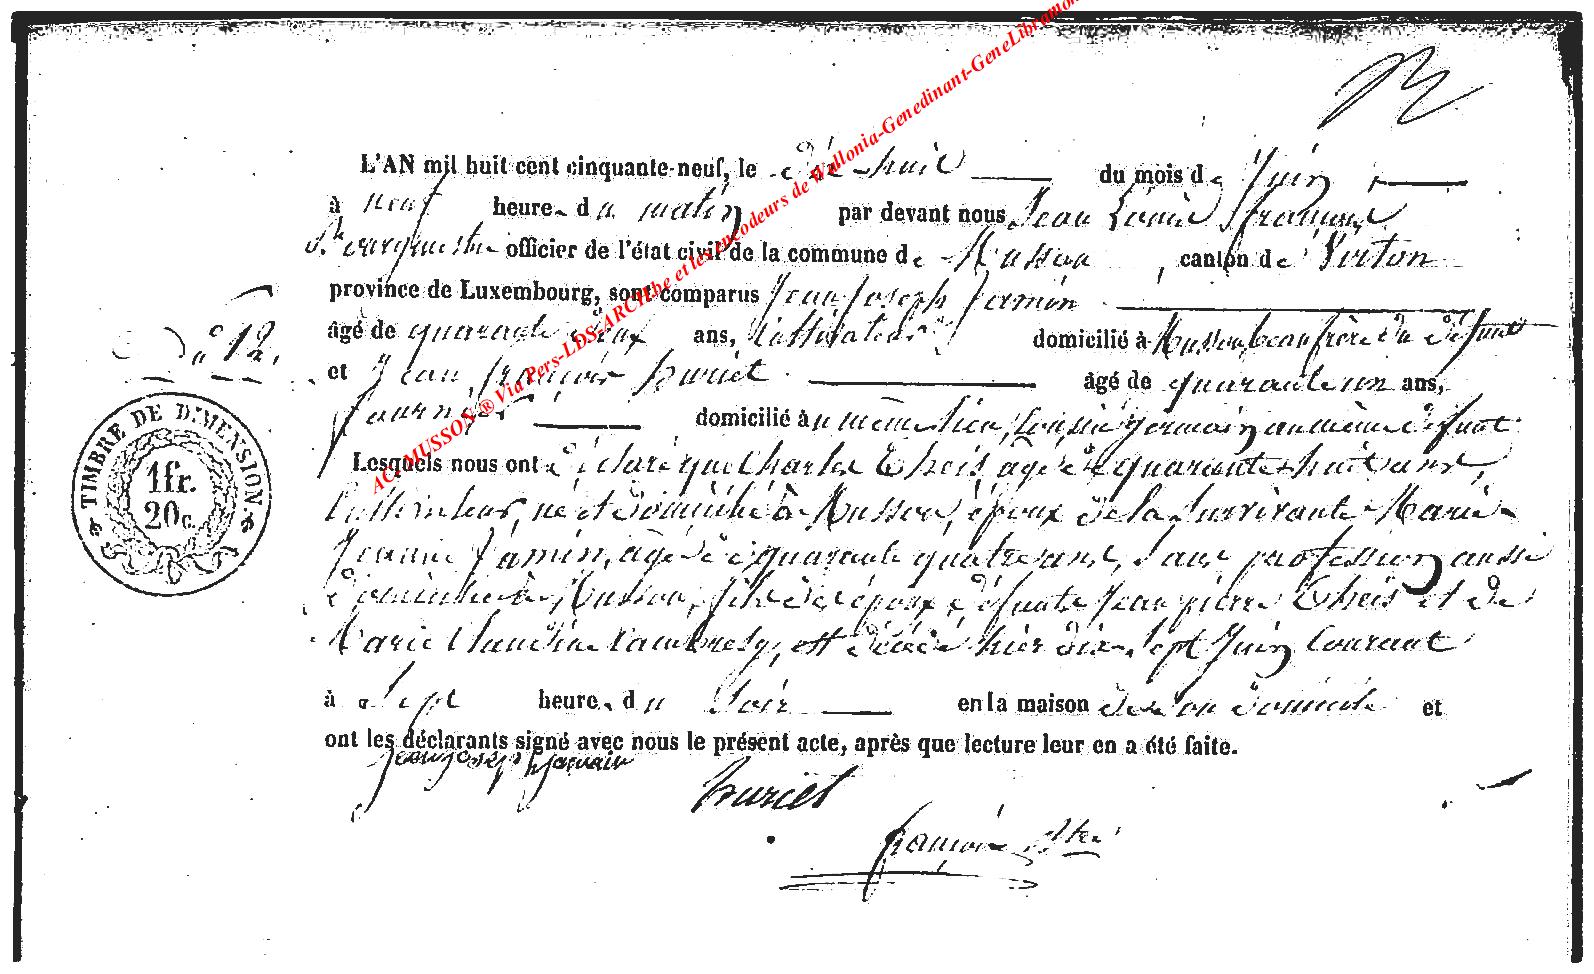 L'AN mil huit cent cinquante-neuf, le dix huit du mois de Juin
à neuf heure du matin par devant nous Jean Louis François
Bourgmestre officier de l'état civil de la commune de Musson, canton de Virton
province de Luxembourg, sont comparus Jean Joseph Jamin
âgé de quarante deux ans, Cultivateur domicilié à Musson, beau frère du défunt
N° 12.
et Jean François Huriet âgé de quarante un ans,
domicilié au même lieu, Cousin germain au même défunt
Lesquels nous ont déclaré que Charles Theis, agé de quarante huit ans,
Cultivateur, né et domicilié à Musson, époux de la Survivante Marie
Jeanne Jamin, agée de quarante quatre ans, Sans profession aussi
domiciliée à Musson, fils des époux défunts Jean pierre Theis et de
Marie Claudine Lambresy, est décédé hier dix Sept Juin Courant
à Sept heure du Soir en la maison de son domicile et
ont les déclarants signé avec nous le présent acte, après que lecture leur en a été faite.
Jean Joseph Jamin
Huriet
François
TIMBRE DE DIMENSION
1 fr.
20 c.
AC. MUSSON ® Via Pers-LDS-ARCH.be et les encodeurs de Wallonia-Genedinant-GeneLibramon